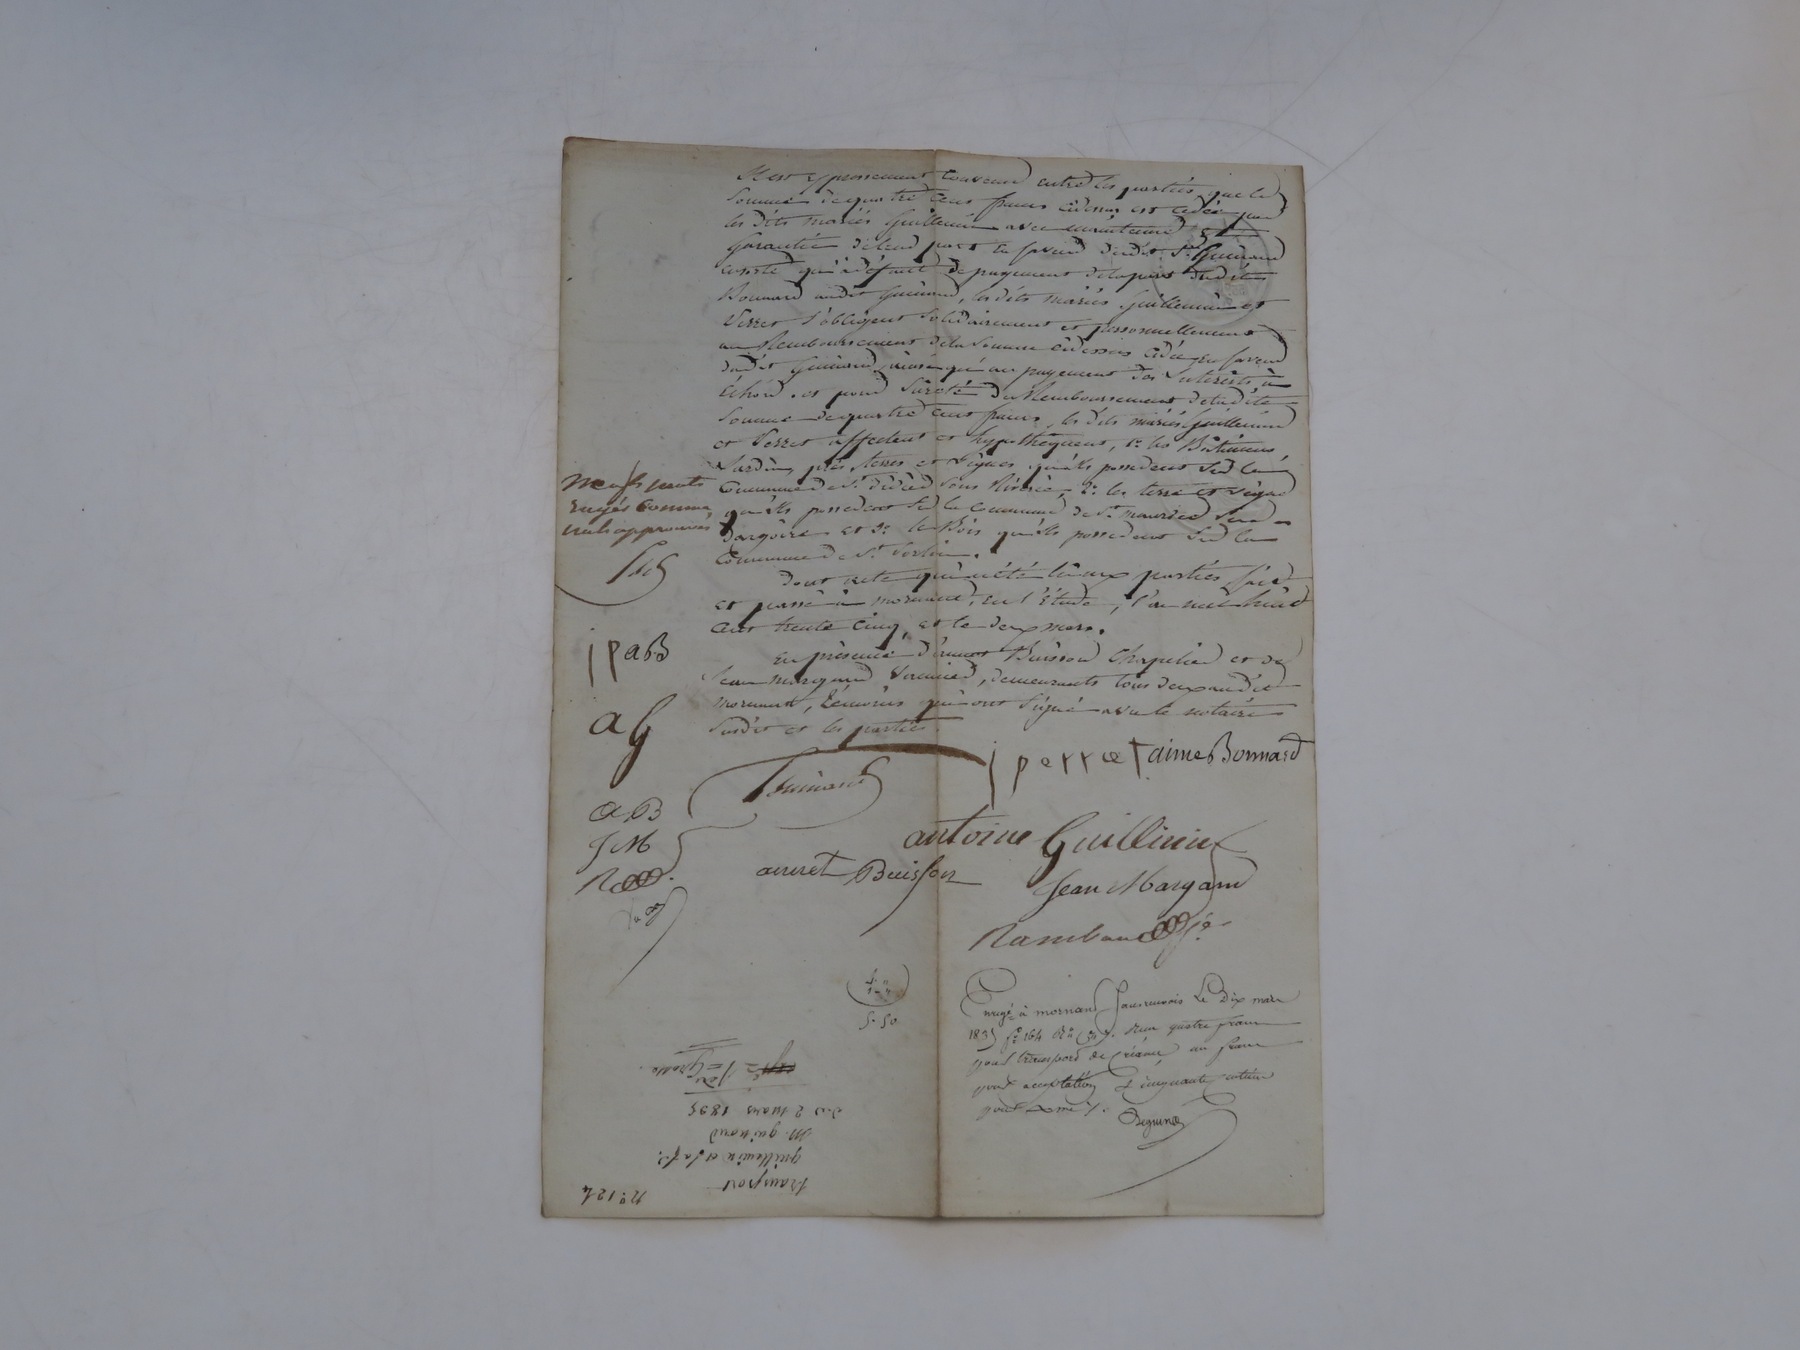 Il est expressement convenu entre les parties que la
somme de quatre cens francs cidessus est cédée par
les dits mariés Guillemin avec maintenue et
Garantie de leur part en faveur dudit Sr. Guinand
ensorte qu'à défaut de payement de la part dudit
Bonnard audit Guinand, les dits mariés Guillemin et
Perret s'obligent solidairement et personnellement
au Remboursement de la somme cidessus cédée en faveur
dudit Guinand, ainsi qu'au payement des Intérêts à
Échoir. et pour sûreté du Remboursement de ladite
somme de quatre cens francs, les dits mariés Guillemin
et Perret affectent et hypothèquent, 1o. les Bâtimens,
Jardin, prés, terres et Vignes qu'ils possedent sur la
Commune de St. didier sous Riverie, 2o. les terre et vigne
qu'ils possedent sur la Commune de St. maurice sur
dargoire et 3o. le Bois qu'ils possedent sur la
Commune de St. Sorlin.
Dont acte qui a été lu aux parties fait
et passé à mornant, en l'Étude, l'an mil huit
cent trente cinq, et le deux mars.
En présence d'annet Buisson Chapelier et de
Jean margand, demeurants tous deux audit
mornant, témoins qui ont signé avec le notaire
susdit et les parties.
mots
rayés comme
nuls approuvés
j p a B
a G
a B
J M
R
Guinand
j perret aime Bonnard
antoine Guillemin
annet Buisson
Jean Margand
Rambaud
Enregé. à mornant sans renvois le dix mars
1835 fo. 164 Reçu quatre francs
pour transport de créance un franc
pour acceptation et cinquante centimes
pour dixme
5-50
du 2 mars 1835
M. guinand
guillemin et sa fe.
transport
No. 124